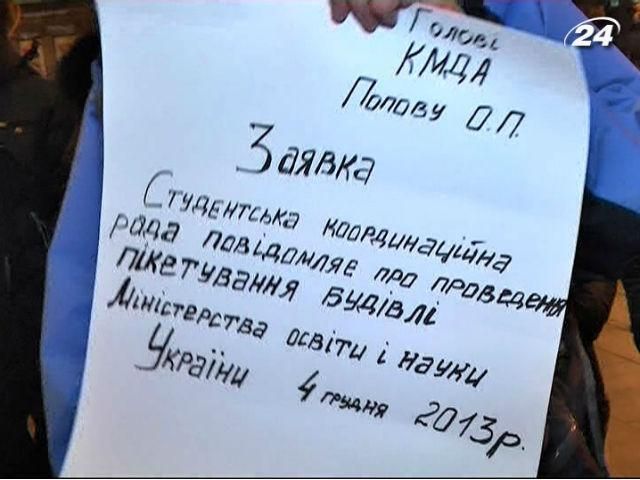 24
Голові
КМДА
Попову О.П.
Заявка
Студентська координаційна
рада повідомляє про проведення
пікетування будівлі
Міністерства освіти і науки
України 4 грудня 2013р.